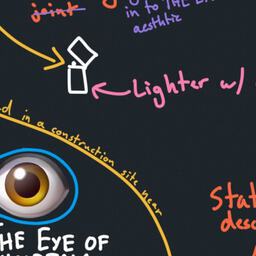 joint
in to THE
aesthtic
Lighter w/
in a construction site near
Stat
desc
THE EYE OF